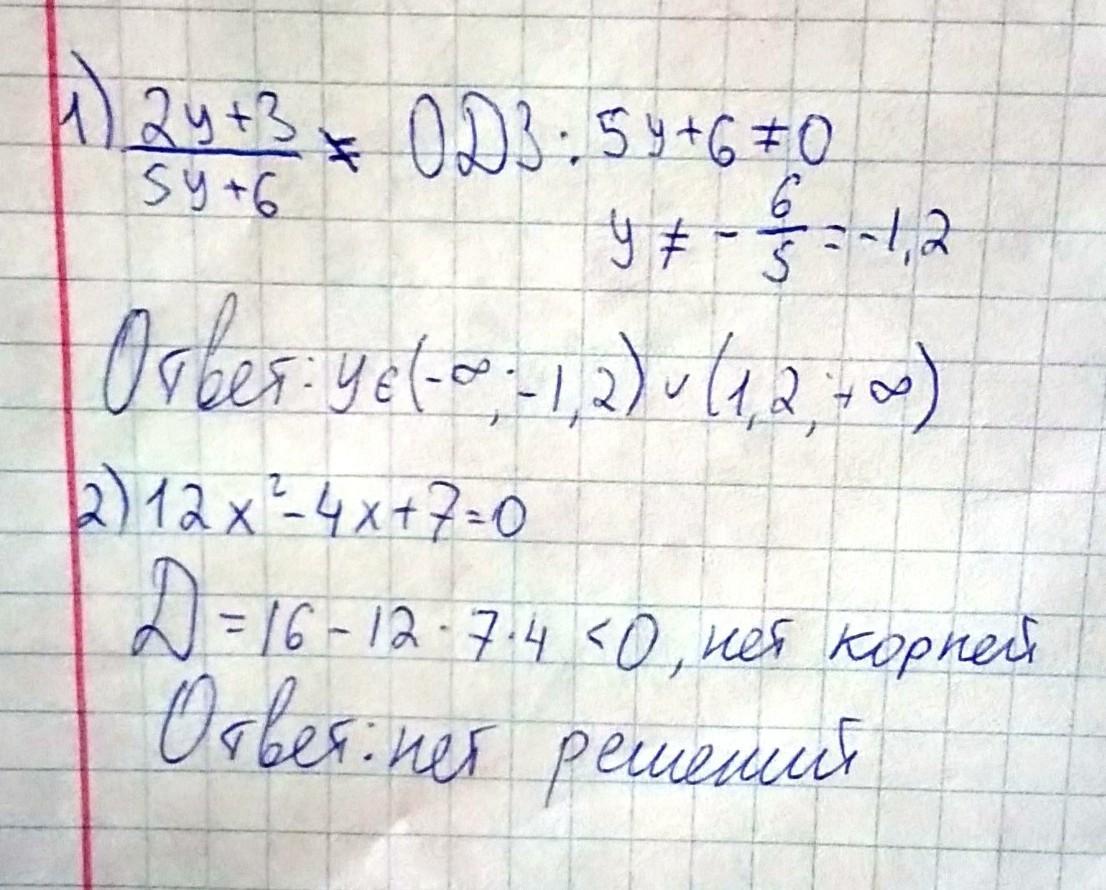 1) (2y+3)/(5y+6) ОДЗ: 5y+6≠0
y ≠ -6/5 = -1,2
Ответ: y∈(-∞; -1,2)∪(1,2; +∞)
2) 12x²-4x+7=0
D=16-12·7·4 <0, нет корней
Ответ: нет решений